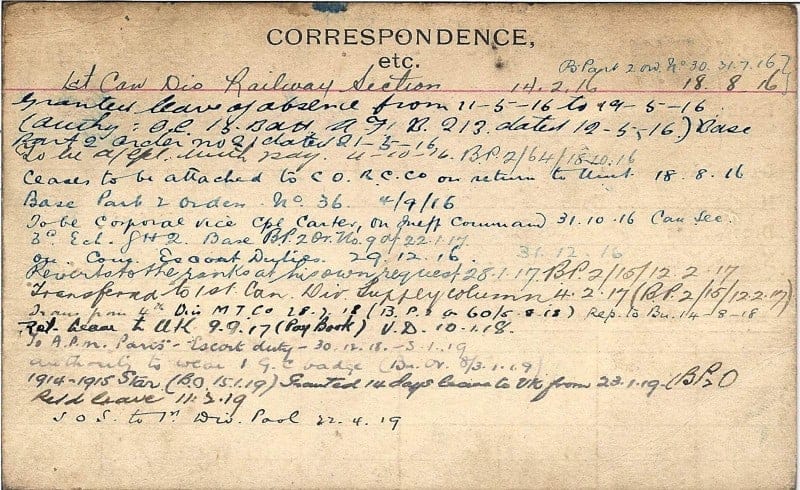 CORRESPONDENCE,
etc.
B.Part 2 ord. No 30. 31.7.16
1st Can Div Railway Section 14.2.16 18.8.16
Granted leave of absence from 11-5-16 to 19-5-16
(Authy: O.C. 15. Batt A.F. B. 213. dated 12-5-16) Base
Part 2 Order no 21 dated 21-5-16
To be A/Cpl. with pay. 11-10-16. B.P. 2/64/18-10.16
Ceases to be attached to C.O.R.C.Co on return to Unit. 18.8.16
Base Part 2 Orders No. 36. 4/9/16
To be Corporal vice Cpl Carter, on Ineff Command 31.10.16 Can Sec.
3rd Ech. G.H.Q. Base B.P. 2 Or. No. 9 of 22.1.17
on Cong. Escort Duties. 29.12.16. 31.12.16
Reverts to the ranks at his own request 28.1.17. B.P. 2/15/12.2.17
Transferred to 1st Can. Div. Supply Column 4.2.17 (B.P. 2/15/12.2.17)
Trans from 4th Div M.T. Co 28.7.18 (B.P. 2 o 60/5-8-18) Rep. to Bu. 14-8-18
Ret. Leave to U.K. 9.9.17 (Pay Book) V.D. 10.1.18.
To A.P.M. Paris - Escort duty - 30.12.18. - 5.1.19
authority to wear 1 G.C. badge (Bn. Or. 8/3.1.19)
1914-1915 Star (B.O. 15.1.19) Granted 14 days leave to UK from 23.1.19. (B.P. 2 O
Ret'd leave 11.2.19
S O S. to 1st Div. Pool 22.4.19